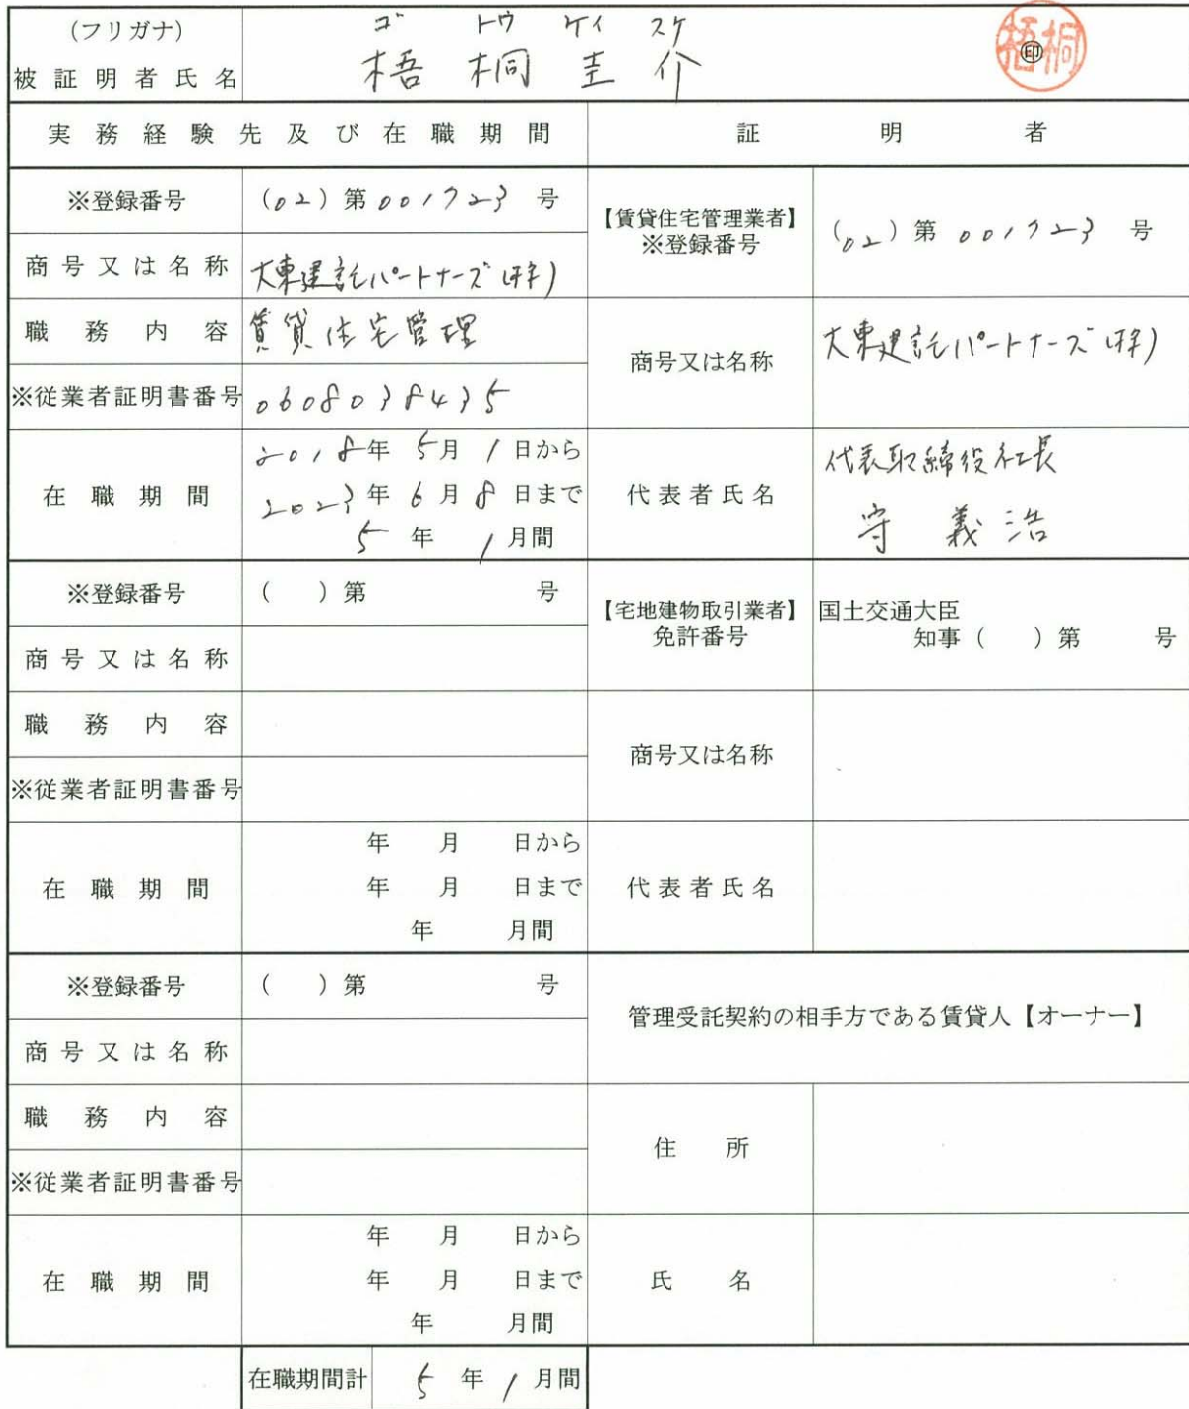 (フリガナ) ゴ トウ ケイ スケ
被証明者氏名 梧桐圭介 ㊞ 梧桐
実務経験先及び在職期間 証明者
※登録番号 (02) 第001723 号
【賃貸住宅管理業者】
※登録番号 (02) 第 001723 号
商号又は名称 大東建託パートナーズ(株)
職務内容 賃貸住宅管理
商号又は名称 大東建託パートナーズ(株)
※従業者証明書番号 0608038435
在職期間 2018年 5月 1日から
2023年 6月 8日まで
5年 1月間
代表者氏名 代表取締役社長
守 義浩
※登録番号 ( ) 第 号
【宅地建物取引業者】 国土交通大臣
免許番号 知事 ( ) 第 号
商号又は名称
職務内容
商号又は名称
※従業者証明書番号
在職期間 年 月 日から
年 月 日まで
年 月間
代表者氏名
※登録番号 ( ) 第 号
管理受託契約の相手方である賃貸人【オーナー】
商号又は名称
職務内容
住所
※従業者証明書番号
在職期間 年 月 日から
年 月 日まで
年 月間
氏名
在職期間計 5年 1月間